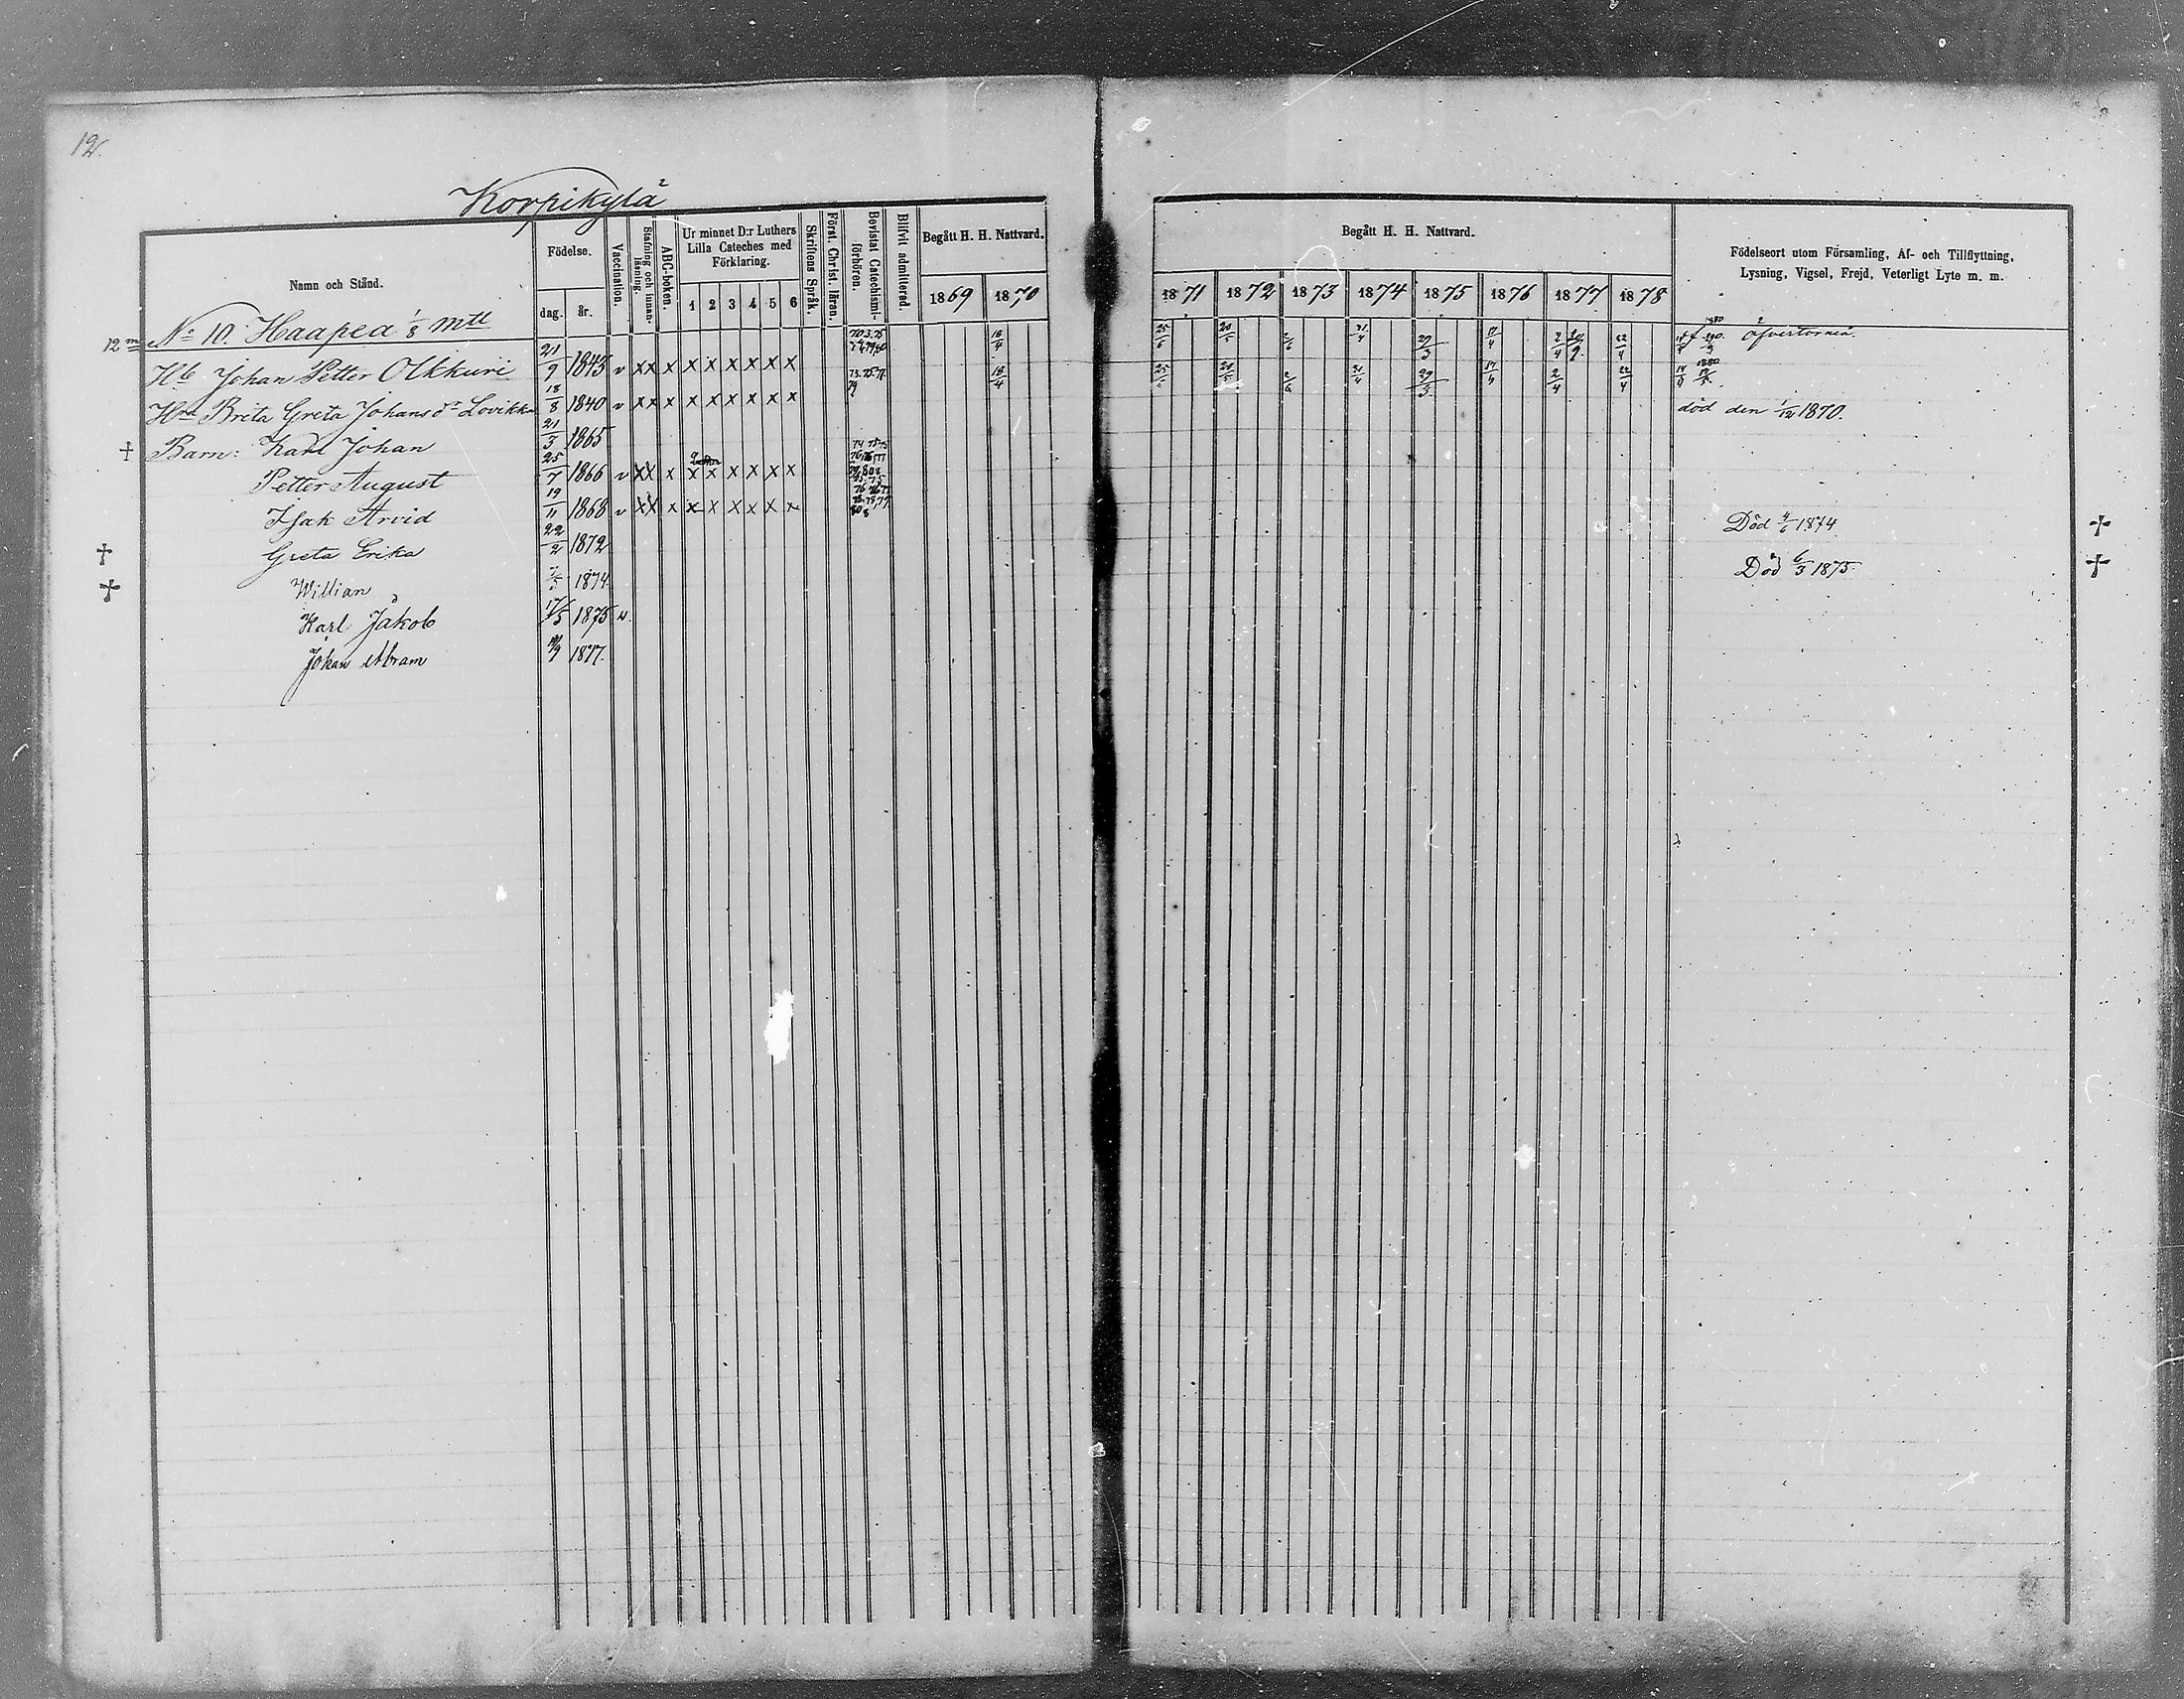 12.
Korpikylä
Namn och Stånd.
Födelse.
dag. år.
Vaccination.
Stafning och innanläsning.
ABC-boken.
Ur minnet D:r Luthers Lilla Cateches med Förklaring.
1 2 3 4 5 6
Skriftens Språk.
Först. Christ. läran.
Bevistat Catechismiförhören.
Blifvit admitterad.
Begått H. H. Nattvard.
1869 1870
Begått H. H. Nattvard.
1871 1872 1873 1874 1875 1876 1877 1878
Födelseort utom Församling, Af- och Tillflyttning,
Lysning, Vigsel, Frejd, Veterligt Lyte m. m.
No 10. Haapea 1/8 mtl
Hb Johan Petter Olkkuri 21/9 1843 v x x x x x x x x x 18/4 25/6 20/5 2/6 31/4 29/3 17/4 2/4 22/4 Öfvertorneå
Hru Brita Greta Johansdr Lovikka 18/8 1840 v x x x x x x x x x 18/4 25/6 20/5 2/6 31/4 29/3 17/4 2/4 22/4
† Barn: Karl Johan 21/3 1865 död den 1/12 1870.
Petter August 25/7 1866 v x x x x x x x x x
Isak Arvid 19/11 1868 v x x x x x x x x x
† Greta Erika 22/2 1872 Död 4/6 1874 †
† Willian 1874 Död 6/3 1875 †
Karl Jakob 17/5 1875 v.
Johan Abram 1877.